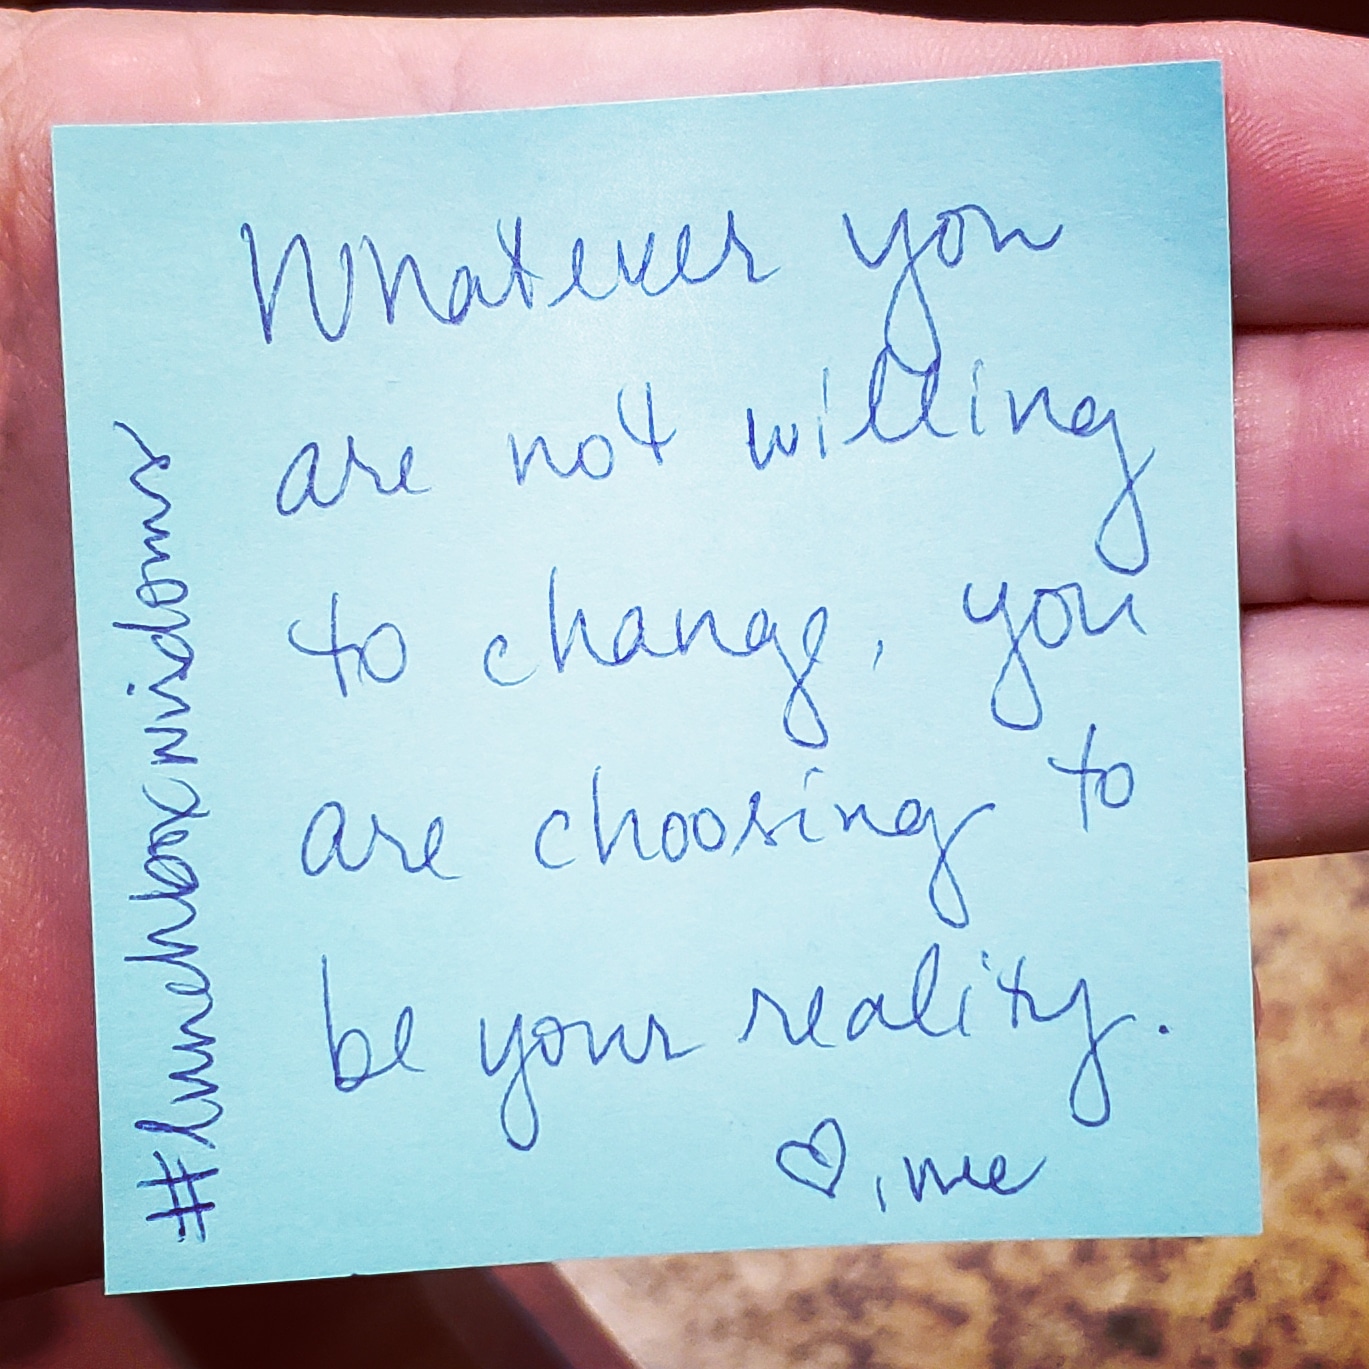 Whatever you
are not willing
to change, you
are choosing to
be your reality.
♡, me
#lunchboxwisdoms